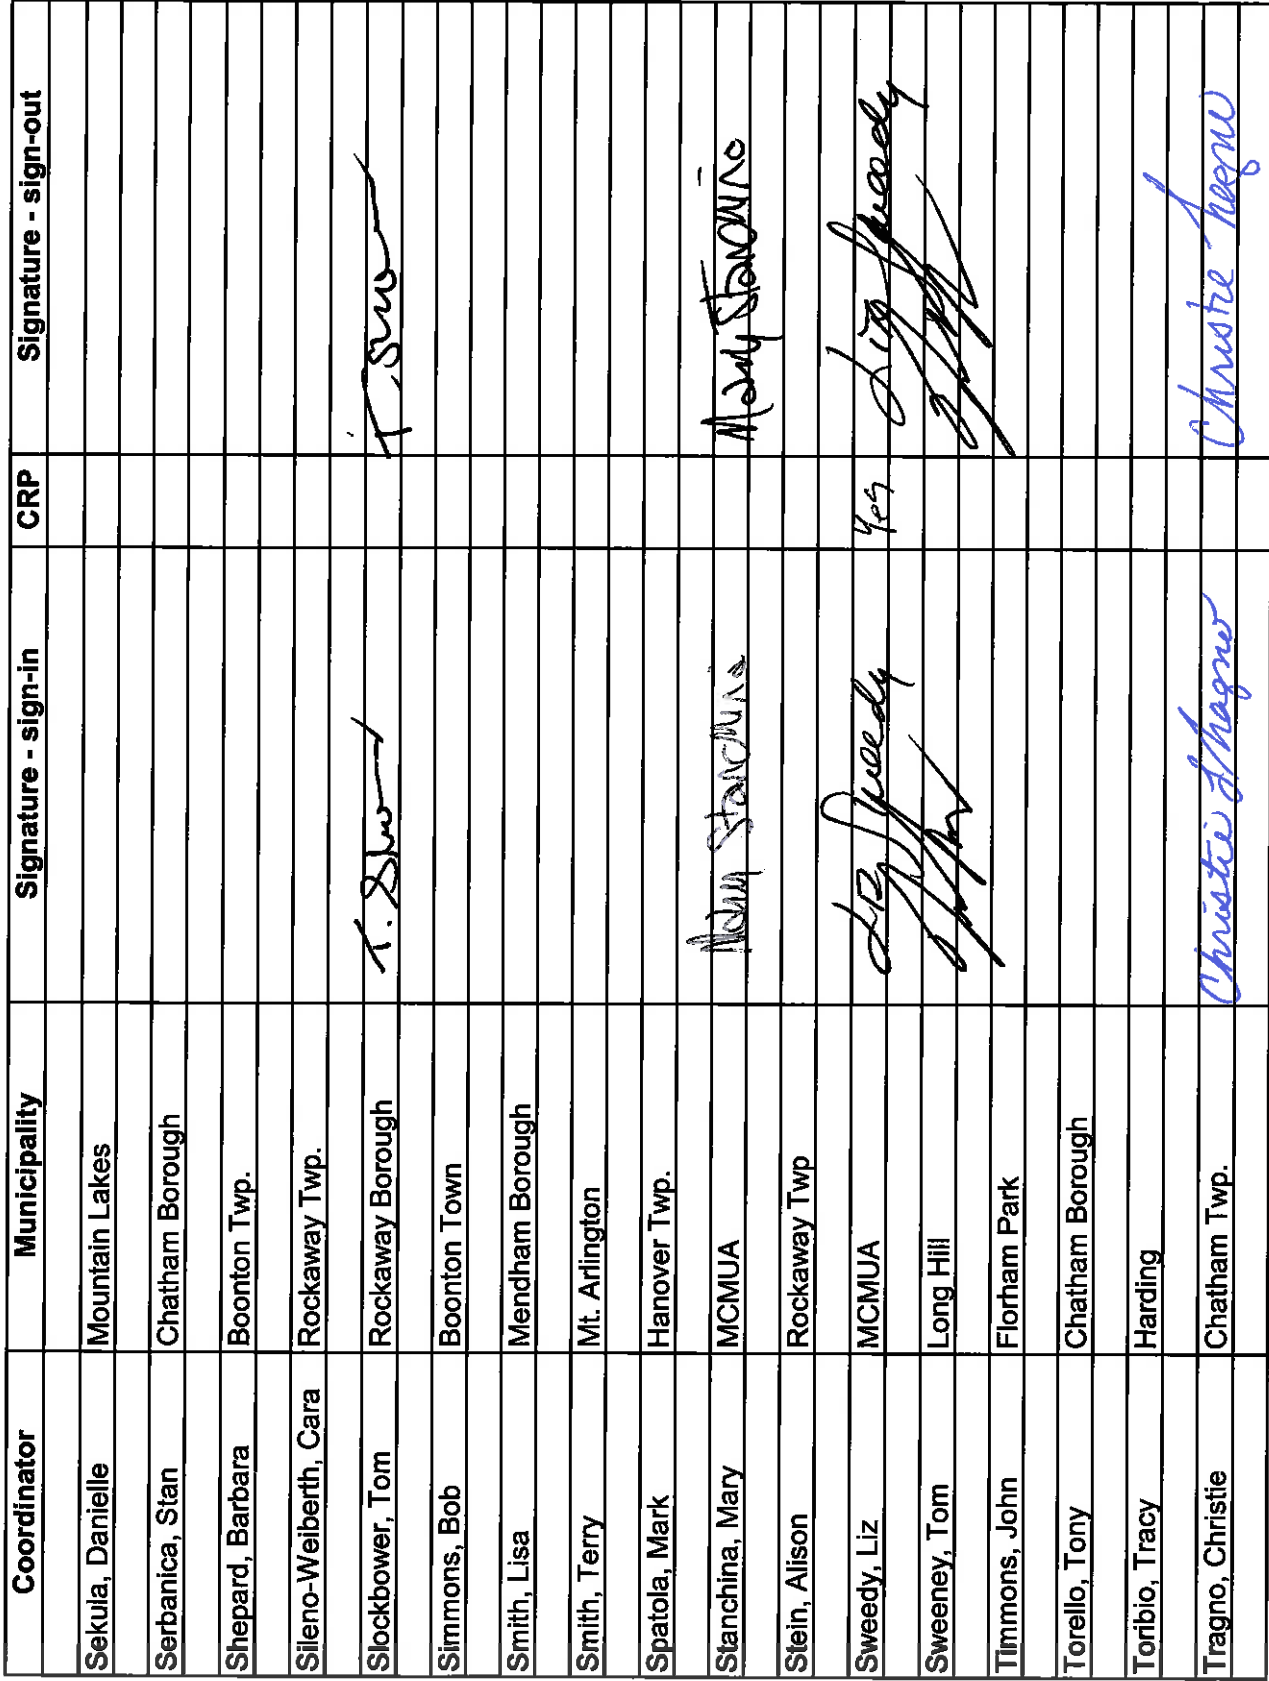 Coordinator Municipality Signature - sign-in CRP Signature - sign-out
Sekula, Danielle Mountain Lakes
Serbanica, Stan Chatham Borough
Shepard, Barbara Boonton Twp.
Sileno-Welberth, Cara Rockaway Twp.
Slockbower, Tom Rockaway Borough
Simmons, Bob Boonton Town
Smith, Lisa Mendham Borough
Smith, Terry Mt. Arlington
Spatola, Mark Hanover Twp.
Stanchina, Mary MCMUA Mary Stanchina Mary Stanchina
Stein, Alison Rockaway Twp
Sweedy, Liz MCMUA Liz Sweedy Yes Liz Sweedy
Sweeney, Tom Long Hill
Timmons, John Florham Park
Torello, Tony Chatham Borough
Toribio, Tracy Harding
Tragno, Christie Chatham Twp. Christie Tragno Christie Tragno